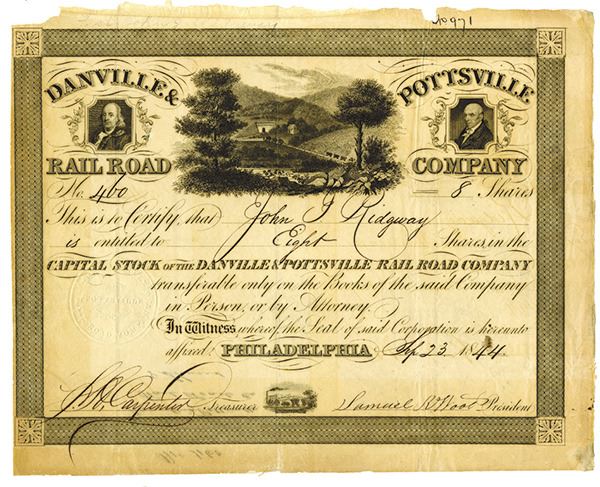 No 971
DANVILLE & POTTSVILLE
RAIL ROAD COMPANY
No. 460 8 Shares
This is to Certify, that John J Ridgway
is entitled to Eight Shares, in the
CAPITAL STOCK OF THE DANVILLE & POTTSVILLE RAIL ROAD COMPANY
transferable only on the Books of the said Company
in Person, or by Attorney.
In Witness whereof, the Seal of said Corporation is hereunto
affixed. PHILADELPHIA Sep 23. 1844.
Carpenter Treasurer Samuel R Wood President